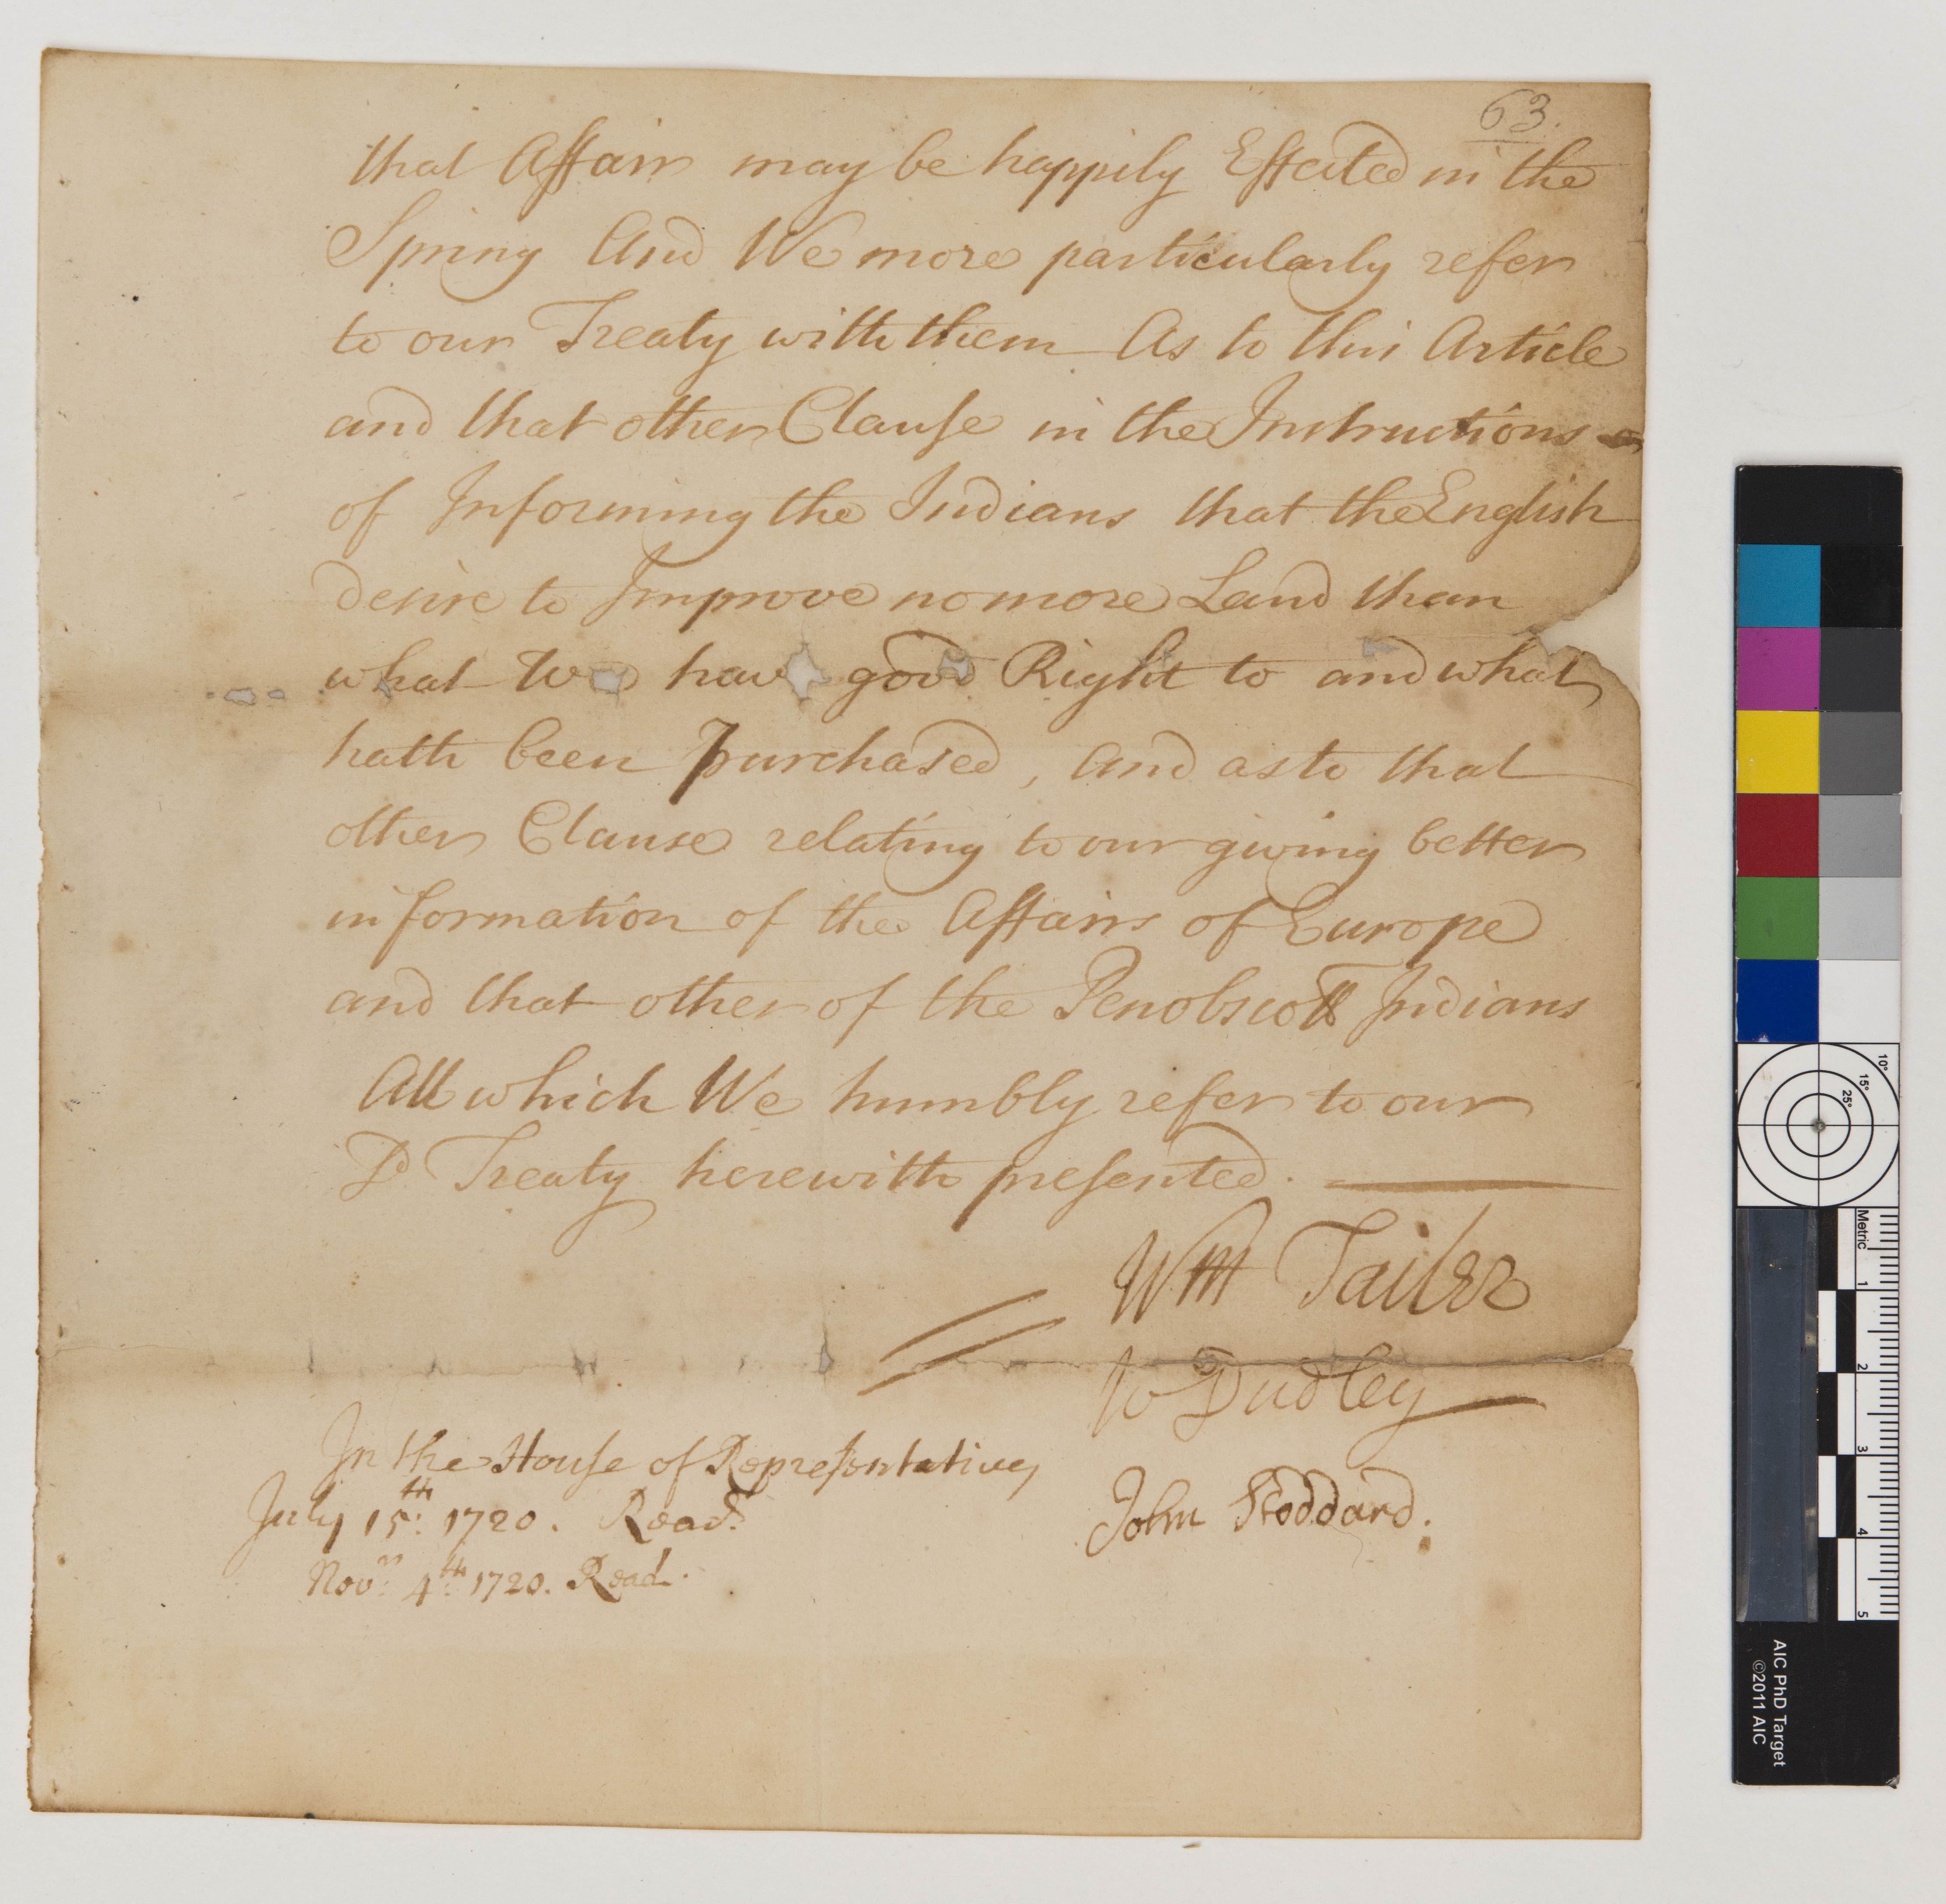 63.
that Affair may be happily Effected in the
Spring And We more particularly refer
to our Treaty with them As to this Article
and that other Clause in the Instructions
of Informing the Indians that the English
desire to Improve no more Land than
what We have good Right to and what
hath been purchased, And as to that
other Clause relating to our giving better
information of the Affairs of Europe
and that other of the Penobscott Indians
All which We humbly refer to our
Sd. Treaty herewith presented.
Wm Tailer
W Dudley
John Stoddard.
In the House of Representatives
July 15th: 1720. Read.
Novr: 4th: 1720. Read.
10°
15°
25°
Metric
1
2
3
4
5
AIC PhD Target
©2011 AIC